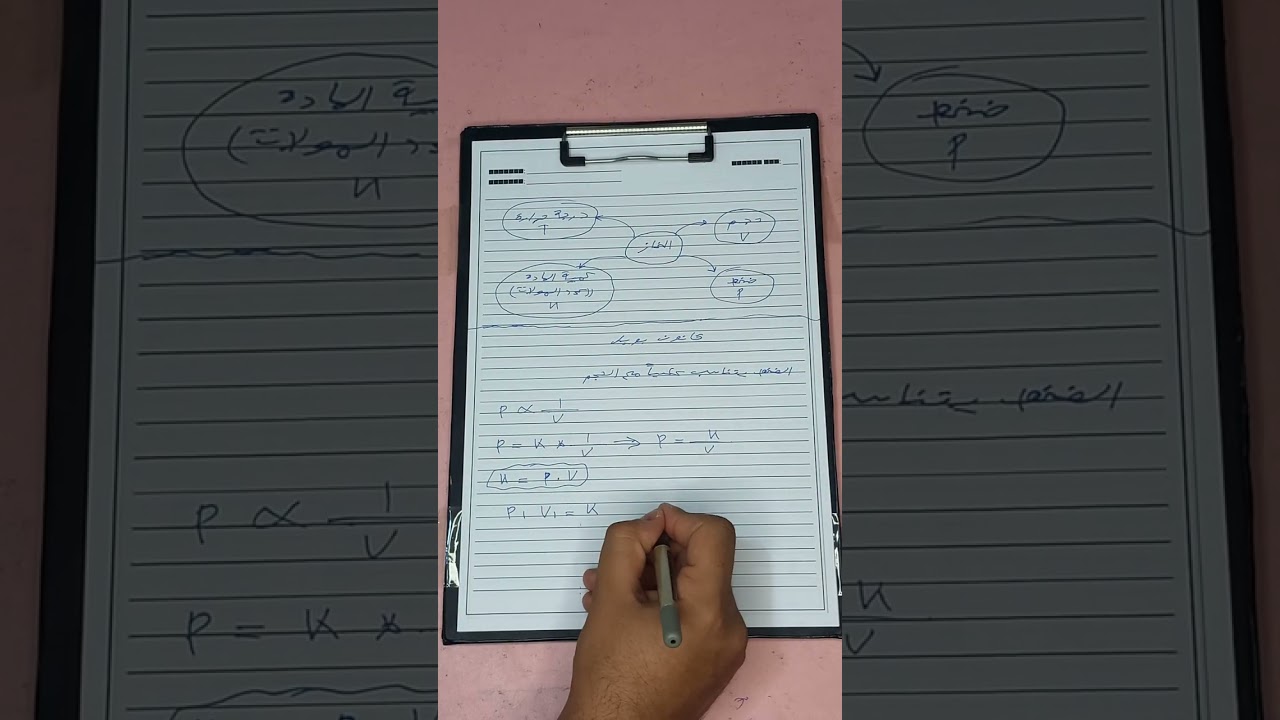 درجة حرارة
T
حجم
V
الغاز
كمية المادة
(عدد المولات)
n
ضغط
P
قانون بويل
الضغط يتناسب عكسياً مع الحجم
P ∝ 1/V
P = K * 1/V ⇒ P = K/V
K = P . V
P₁ V₁ = K